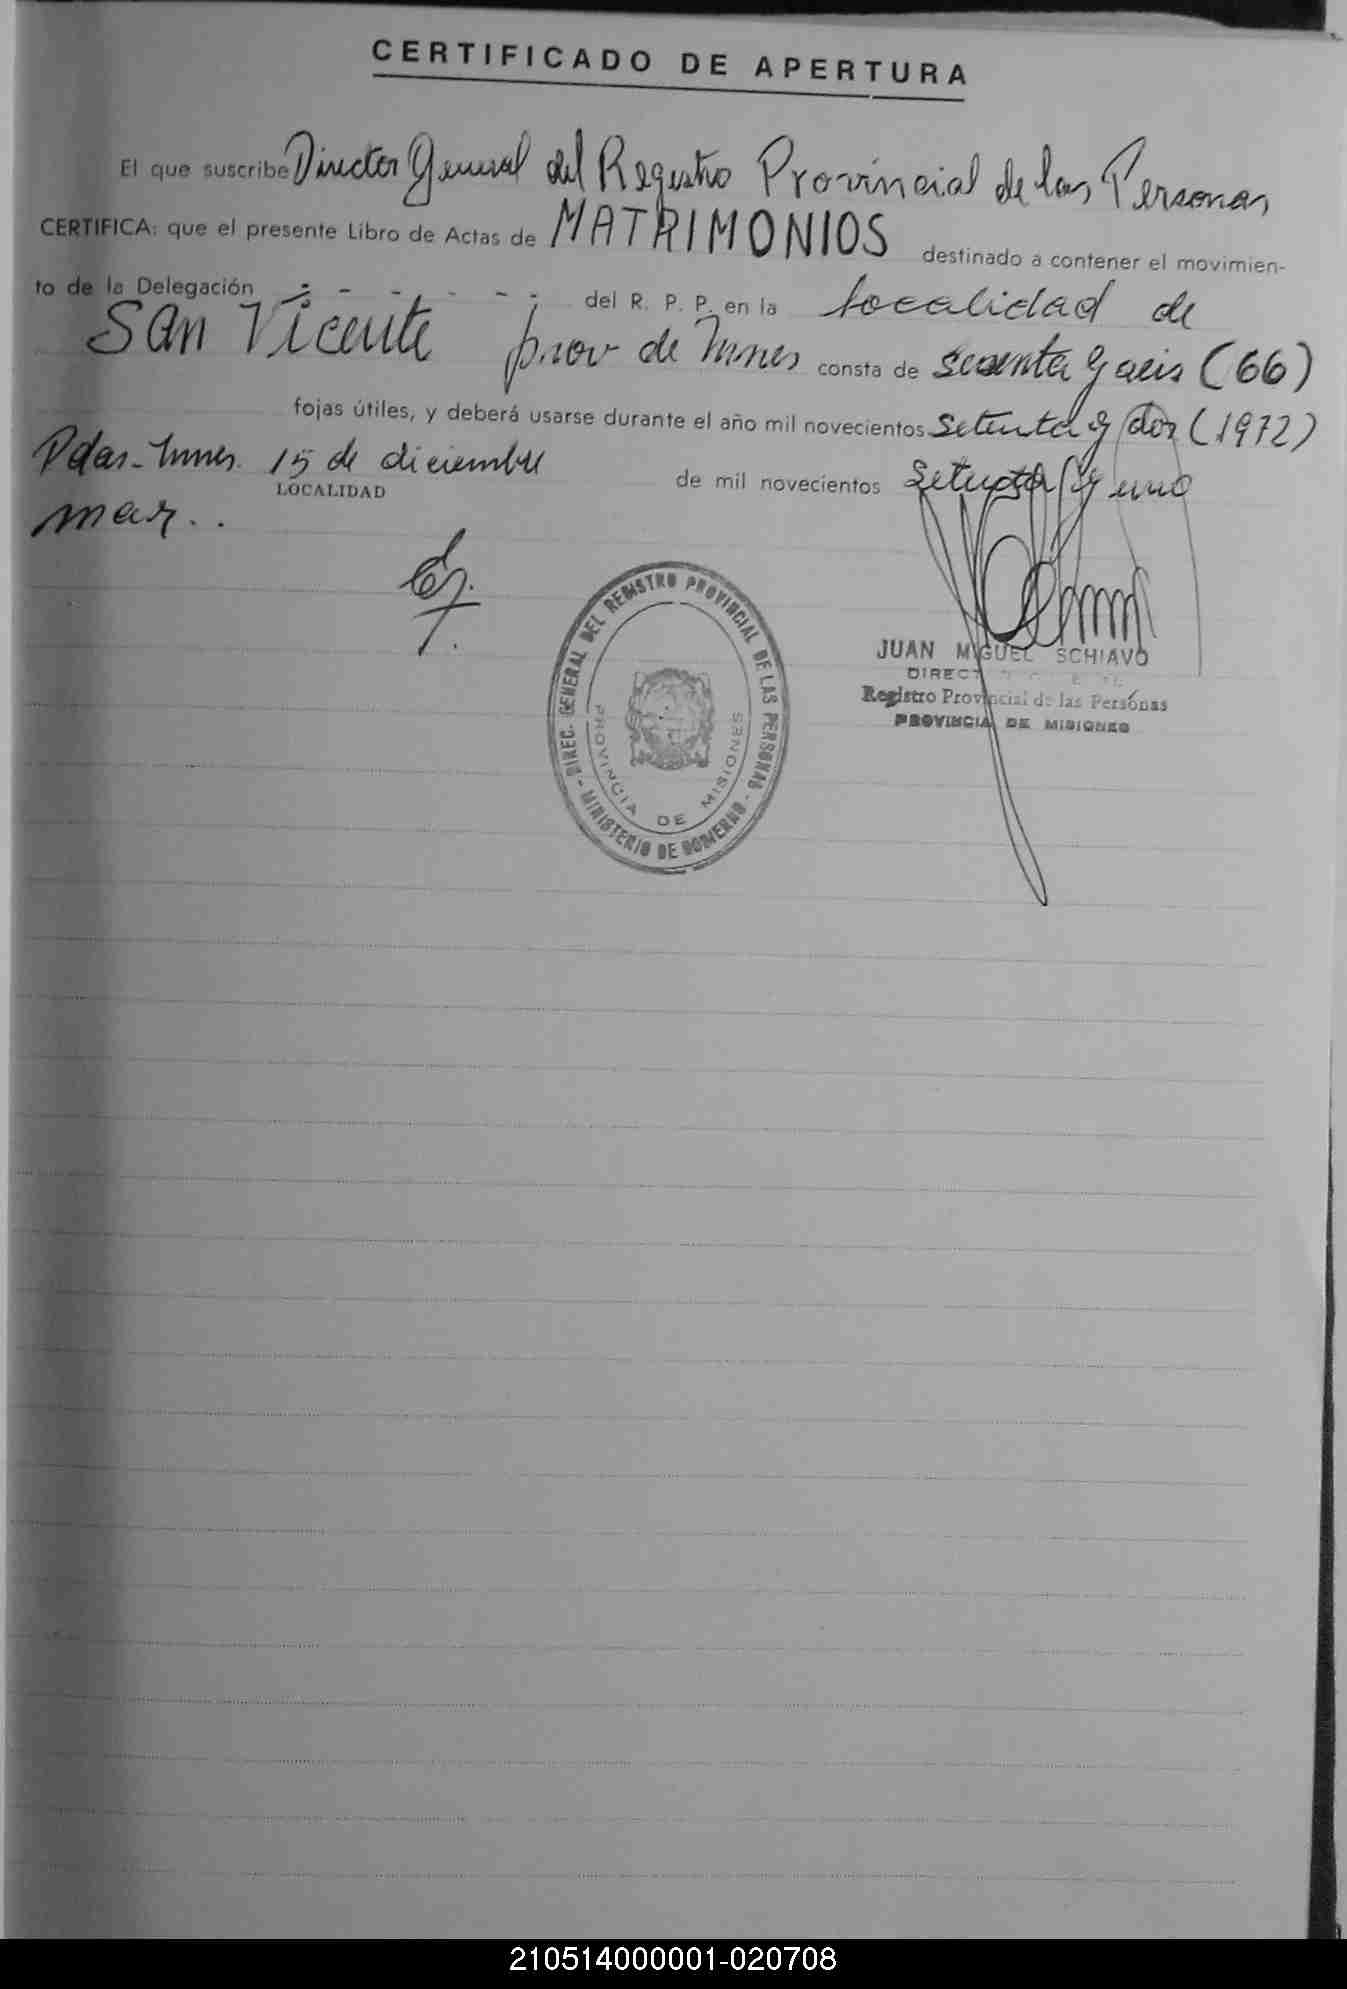 CERTIFICADO DE APERTURA
El que suscribe Director General del Registro Provincial de las Personas
CERTIFICA: que el presente Libro de Actas de MATRIMONIOS destinado a contener el movimien-
to de la Delegación - - - - - - del R. P. P. en la localidad de
San Vicente prov de Mnes consta de sesenta y seis (66)
fojas útiles, y deberá usarse durante el año mil novecientos setenta y dos (1972)
Pdas-Mnes. 15 de diciembre de mil novecientos setenta y uno
LOCALIDAD
DIREC. GENERAL DEL REGISTRO PROVINCIAL DE LAS PERSONAS - MINISTERIO DE GOBIERNO -
PROVINCIA DE MISIONES
JUAN MIGUEL SCHIAVO
Registro Provincial de las Personas
PROVINCIA DE MISIONES
210514000001-020708